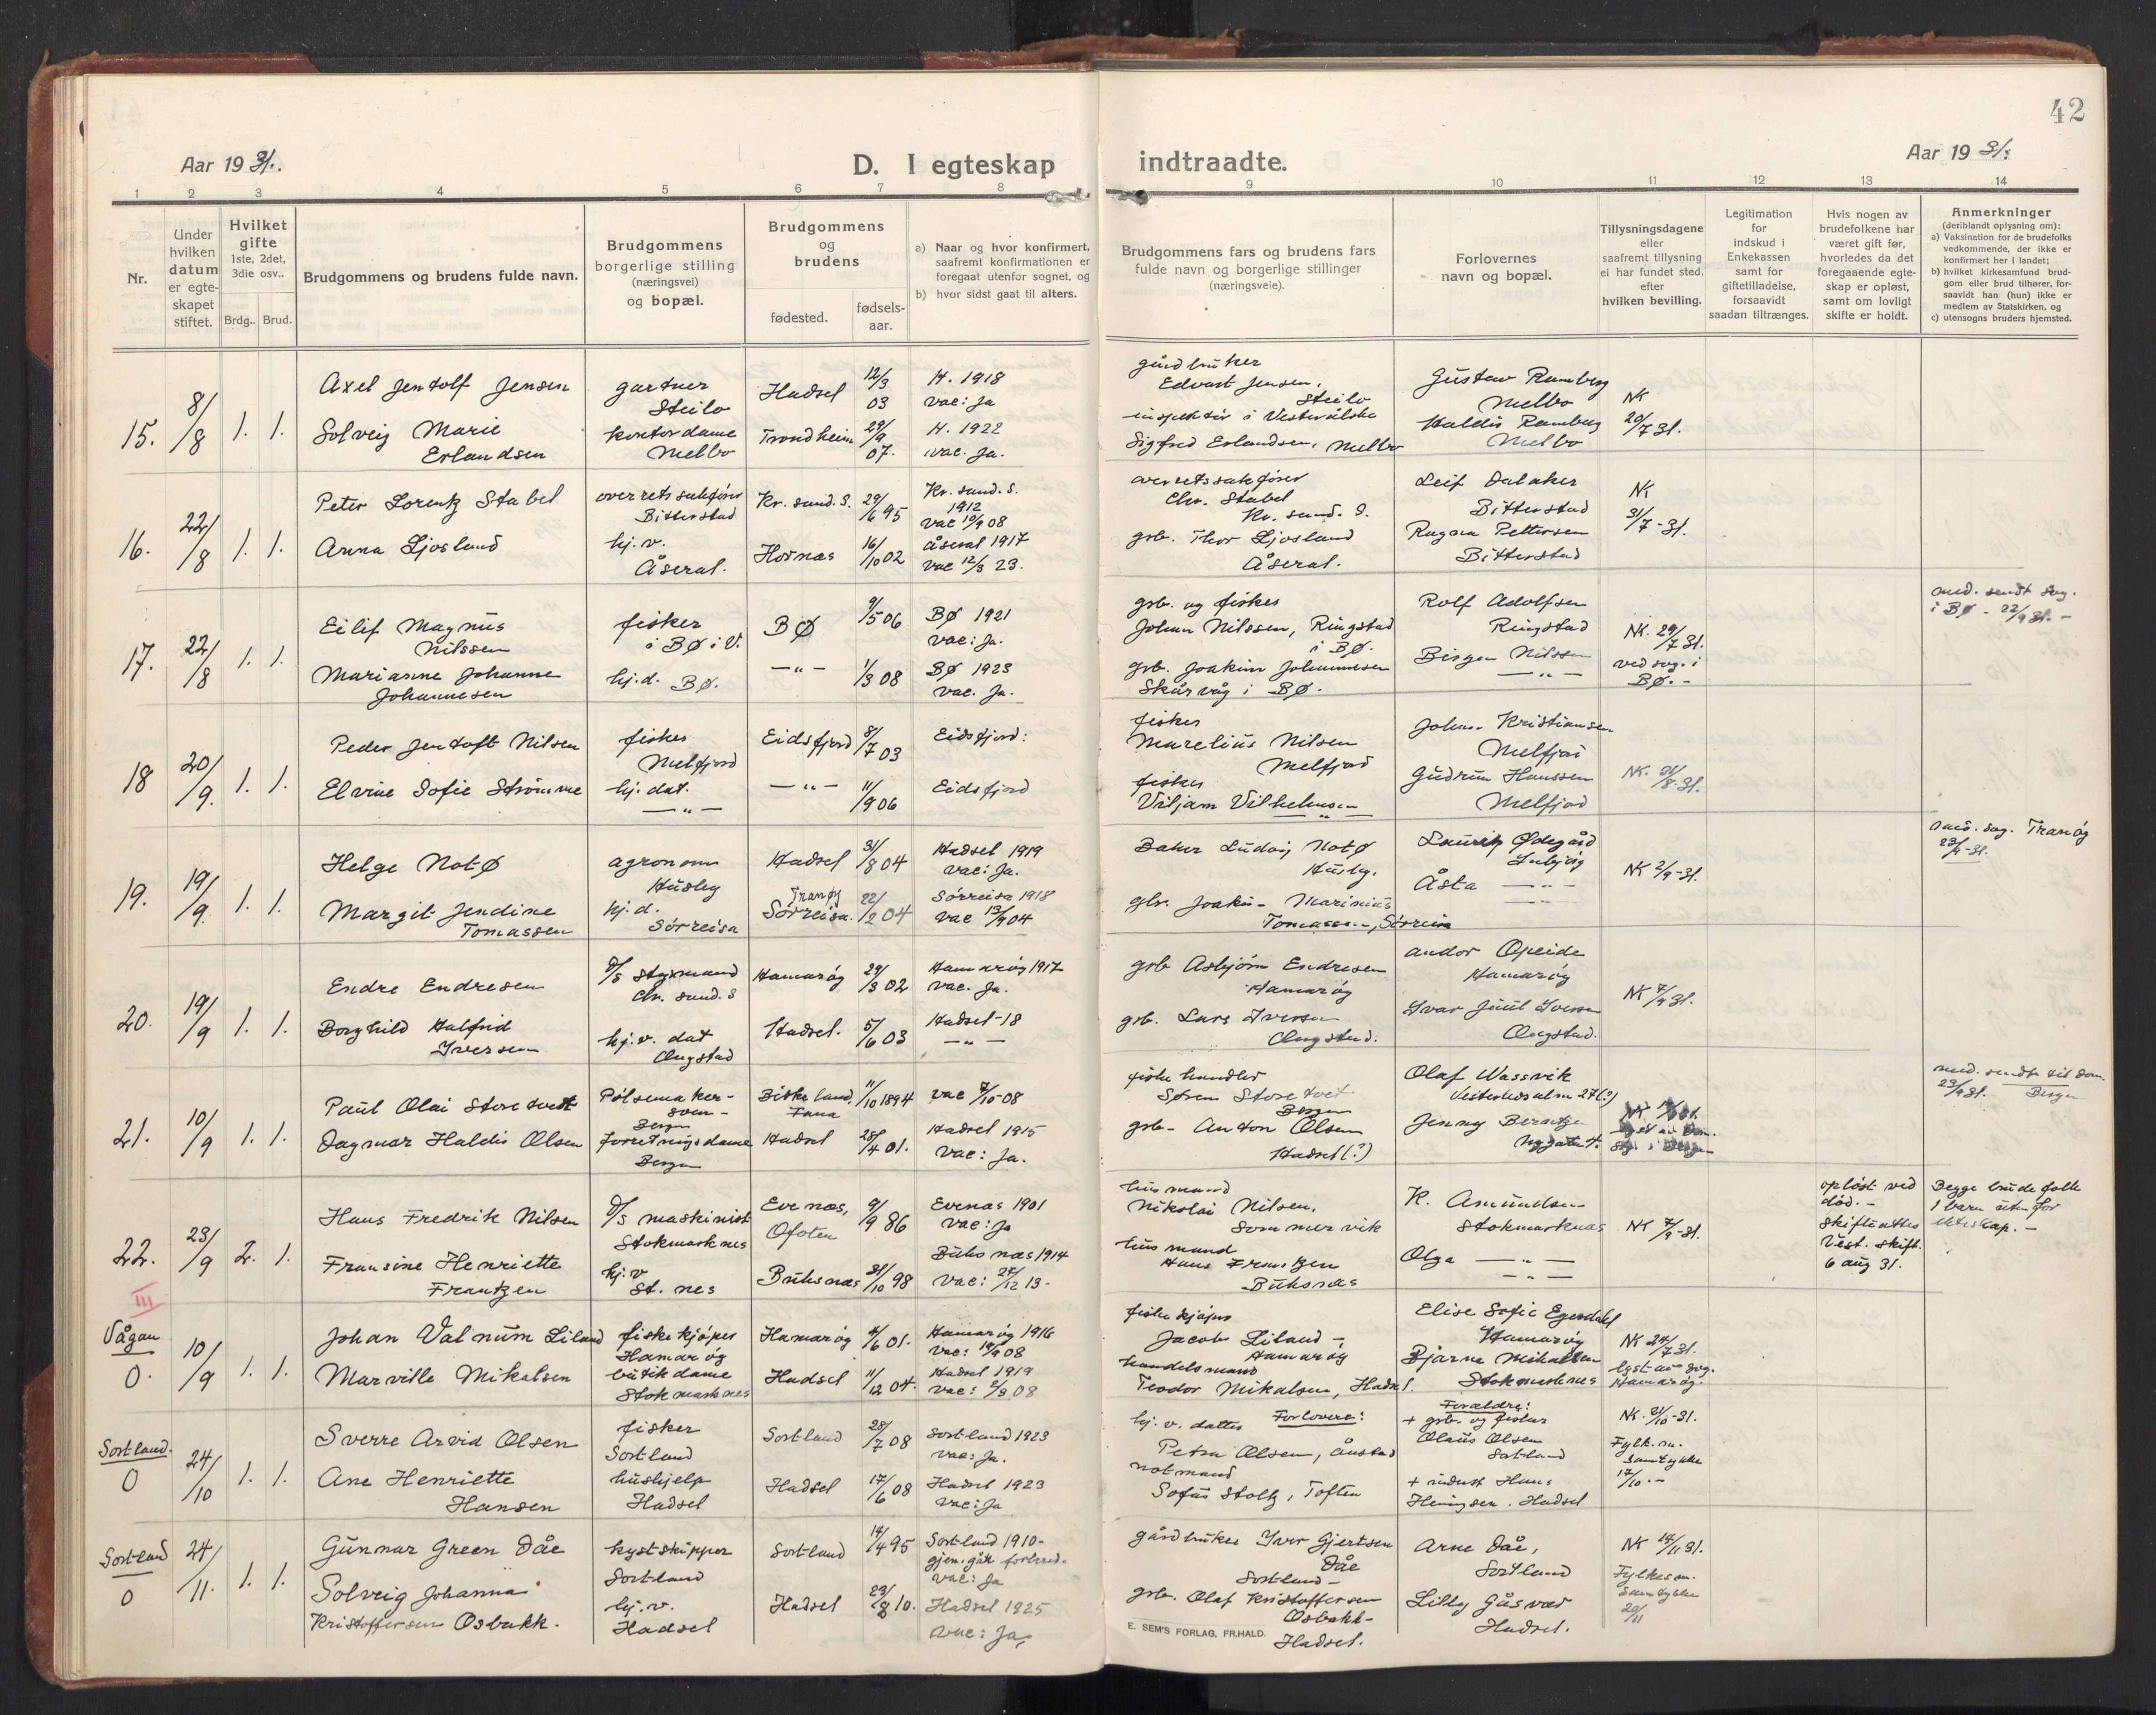 42
Aar 1931.
D. I egteskap
indtraadte.
Aar 1931.
1 2 3 4 5 6 7 8 9 10 11 12 13 14
Nr.
Under hvilken datum er egteskapet stiftet.
Hvilket gifte 1ste, 2det, 3die osv..
Brdg.. Brud.
Brudgommens og brudens fulde navn.
Brudgommens borgerlige stilling (næringsvei) og bopæl.
Brudgommens og brudens
fødested.
fødsels-aar.
a) Naar og hvor konfirmert, saafremt konfirmationen er foregaat utenfor sognet, og
b) hvor sidst gaat til alters.
Brudgommens fars og brudens fars fulde navn og borgerlige stillinger (næringsveie).
Forlovernes navn og bopæl.
Tillysningsdagene eller saafremt tillysning ei har fundet sted. efter hvilken bevilling.
Legitimation for indskud i Enkekassen samt for giftetilladelse, forsaavidt saadan tiltrænges.
Hvis nogen av brudefolkene har været gift før, hvorledes da det foregaaende egteskap er opløst, samt om lovligt skifte er holdt.
Anmerkninger
(deriblandt oplysning om):
a) Vaksination for de brudefolks vedkommende, der ikke er konfirmert her i landet;
b) hvilket kirkesamfund brudgom eller brud tilhører, forsaavidt han (hun) ikke er medlem av Statskirken, og
c) utensogns bruders hjemsted.
15. 8/8 1. 1.
Axel Jentolf Jensen
gartner
Steilo
Hadsel 12/3 03
H. 1918
vac: Ja
gårdbruker
Edvart Jensen,
Steilo
Gustav Ramberg
Melbo
NK
20/7 31.
Solveig Marie
Erlandsen
kontordame
Melbo
Trondheim 29/9 07.
H. 1922
vac. Ja.
inspektør i Vesterålske
Sigfred Erlandsen, Melbo
Haldis Ramberg
Melbo
16. 22/8 1. 1.
Peter Lorentz Stabel
overretssakfører
Bitterstad
Kr. sund. S. 29/6 95
Kr. sund. S.
1912
vac 10/9 08
overretssakfører
Chr. Stabel
Kr. sund. S.
Leif Dalaker
Bitterstad
NK
31/7-31.
Anna Ljosland
hj. v.
Åseral.
Hornæs 16/10 02
Åseral 1917
vac 12/3 23.
grb. Thor Ljosland
Åseral.
Ragna Pettersen
Bitterstad
17. 22/8 1. 1.
Eilif Magnus
Nilssen
fisker
i BØ i V.
BØ 9/5 06
BØ 1921
vac: Ja.
grb. og fisker
Johan Nilssen, Ringstad
i BØ.
Rolf Adolfsen
Ringstad
NK. 29/7 31.
ved sog. i
BØ.-
med. sendt sog.
i BØ - 22/9 31.-
Marianne Johanne
Johannesen
hj. d. BØ.
—"— 1/3 08
BØ 1923
vac. Ja.
grb. Joakim Johannesen
Skårvåg i BØ.
Birger Nilssen
—"—
18 20/9. 1. 1.
Peder Jentoft Nilsen
fisker
Melfjord
Eidsfjord 8/7 03
Eidsfjord:
fisker
Marelius Nilsen
Melfjord
Johan Kristiansen
Melfjord
Elvine Sofie Strømme
hj. dat.
—"—
—"— 11/9 06
Eidsfjord
fisker
Viljam Vilhelmsen
—"—
Gudrun Hanssen
Melfjord
NK. 31/8-31.
19. 19/9 1. 1.
Helge NotØ
agronom
Husby
Hadsel 31/8 04
Hadsel 1919
vac: Ja.
Baker Ludvig NotØ
Husby.
Lauritz Ødegård
NK 2/9-31.
med. sog. Tranøy
23/9-31.
Margit Jendine
Tomassen
hj. d.
Sørreisa
Tranøy
Sørreisa. 22/2 04
Sørreisa 1918
vac 13/9 04
gbr. Joakim Marinius
Tomassen, Sørreisa
Åsta —"—
20. 19/9 1. 1.
Endre Endresen
D/S styrmand
Chr. sund. S
Hamarøy 29/3 02
Hamarøy 1917
vac. Ja.
grb Asbjørn Endresen
Hamarøy
Andor Opeide
Hamarøy
NK 7/9 31.
Borghild Halfrid
Iversen
hj. v. dat
Ongstad
Hadsel. 5/6 03
Hadsel-18
—"—
grb. Lars Iversen
Ongstad.
Ivar Juul Iversen
Ongstad.
21. 10/9 1. 1.
Paul Olai Storetvedt
Pølsemaker-
svenn-
Bergen
Fana 11/10 1894
vac 7/10-08
fiskehandler
Søren Storetvet
Bergen
Olaf Wassvik
med. sendt til dom.
23/9 31. Bergen
Dagmar Haldis Olsen
forretningsdame
Bergen
Hadsel 28/4 01.
Hadsel 1915
vac: Ja.
grb- Anton Olsen
Hadsel (?)
Jenny
22. 23/9 2. 1.
Hans Fredrik Nilsen
D/S maskinist
Stokmarknes
Evenæs,
Ofoten 9/9 86
Evenæs 1901
vac: Ja
husmand
Nikolai Nilsen,
Sommervik
K. Amundsen
Stokmarknæs
NK 7/9-31.
opløst ved
død.-
Skifteattes
Vest. skift.
6 aug 31.
Begge brudefolk
1 barn utenfor
ekteskap.-
Fransine Henriette
Frantzen
hj. v
St. nes
Buksnæs 31/10 98
Buksnæs 1914
vac: 27/12 13-
husmand
Hans Frantzen
Buksnæs
Olga —"—
—"—
III
Vågan
0. 10/9 1. 1.
Johan Valnum Liland
fiskekjøper
Hamarøy
Hamarøy 4/6 01.
Hamarøy 1916
vac: 19/9 08
fiskekjøper
Jacob Liland -
Hamarøy
Elise Sofie Egesdahl
Hamarøy
NK 24/7 31.
lyst av sog.
Hamarøy.
Marville Mikalsen
butikdame
Stokmarknes
Hadsel 11/12 04.
Hadsel 1919
vac: 2/9 08
handelsmand
Teodor Mikalsen, Hadsel.
Bjarne Mikalsen
Stokmarknes
Sortland.
0 24/10 1. 1.
Sverre Arvid Olsen
fisker
Sortland
Sortland 28/7 08
Sortland 1923
vac: Ja.
hj. v. datter Forlovere:
Petra Olsen, Ånstad
Forældre:
+ grb. og fisker
Olaus Olsen
Sortland
NK. 21/10-31.
Fylk. m.
samtykke
17/10.-
Ane Henriette
Hansen
hushjelp
Hadsel
Hadsel 17/6 08
Hadsel 1923
vac: Ja
notmand
Sofus Stoltz, Toften
+ indust Hans
Heningsen. Hadsel
Sortland
0 24/11. 1. 1.
Gunnar Green Dåe
kystskipper
Sortland
Sortland 14/4 95
Sortland 1910-
vac: Ja
gårdbruker Iver Gjertsen
Dåe
Sortland-
Arne Dåe,
Sortland
NK 14/11 31.
Fylkesm.
samtykke
20/11
Solveig Johanna
Kristoffersen Osbakk.
hj. v.
Hadsel
Hadsel 23/8 10.
Hadsel 1925
vac: Ja,
grb. Olaf Kristoffersen
Osbakk-
Hadsel.
Lilly Gåsvær
Hadsel.
E. SEM'S FORLAG, FR.HALD.